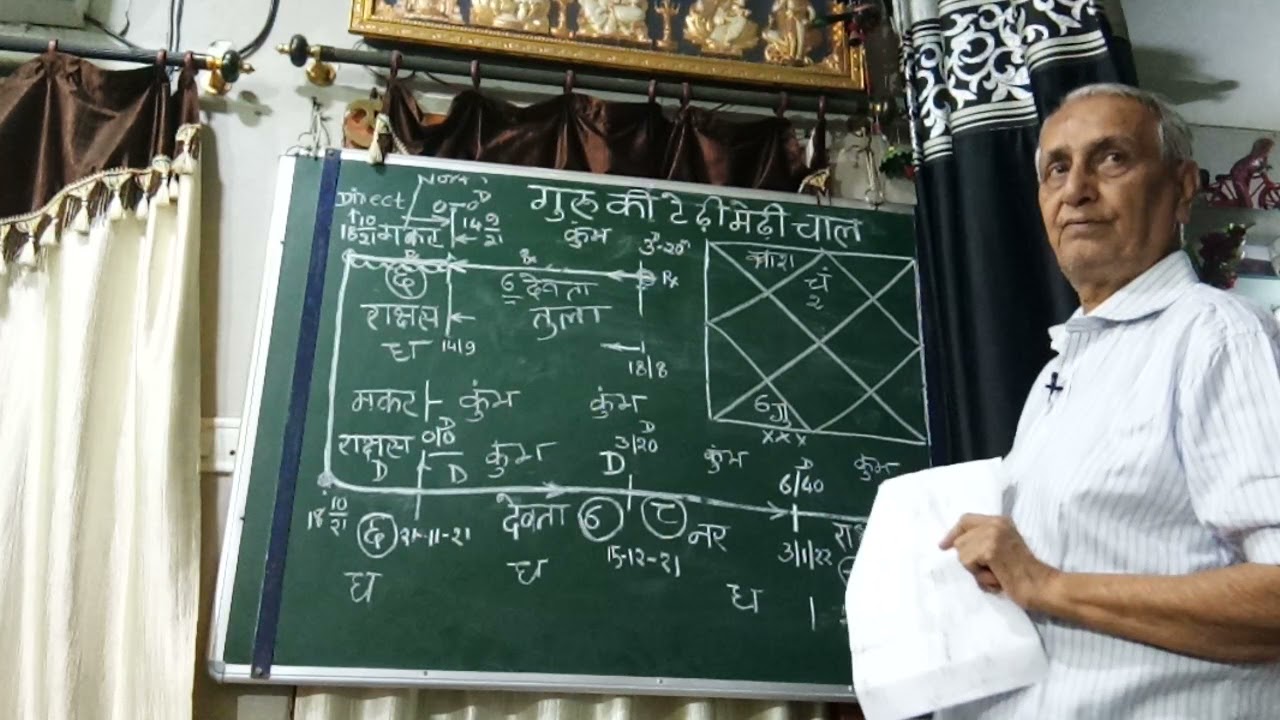 गुरु की टेढ़ी मेढ़ी चाल
Direct
18 10/21 मकर
14 9/21
कुंभ
3-20
Rx
द
६ देवता
राक्षस
तुला
घ 14/9
18/8
मकर
कुंभ
कुंभ
चं
२
६ गु
xxx
राक्षस
कुंभ
D
3/20
कुंभ
6/40
कुंभ
D
D
D
18 10/21
द
21-11-21
देवता
६
च
नर
15-12-21
3/1/22
घ
घ
घ